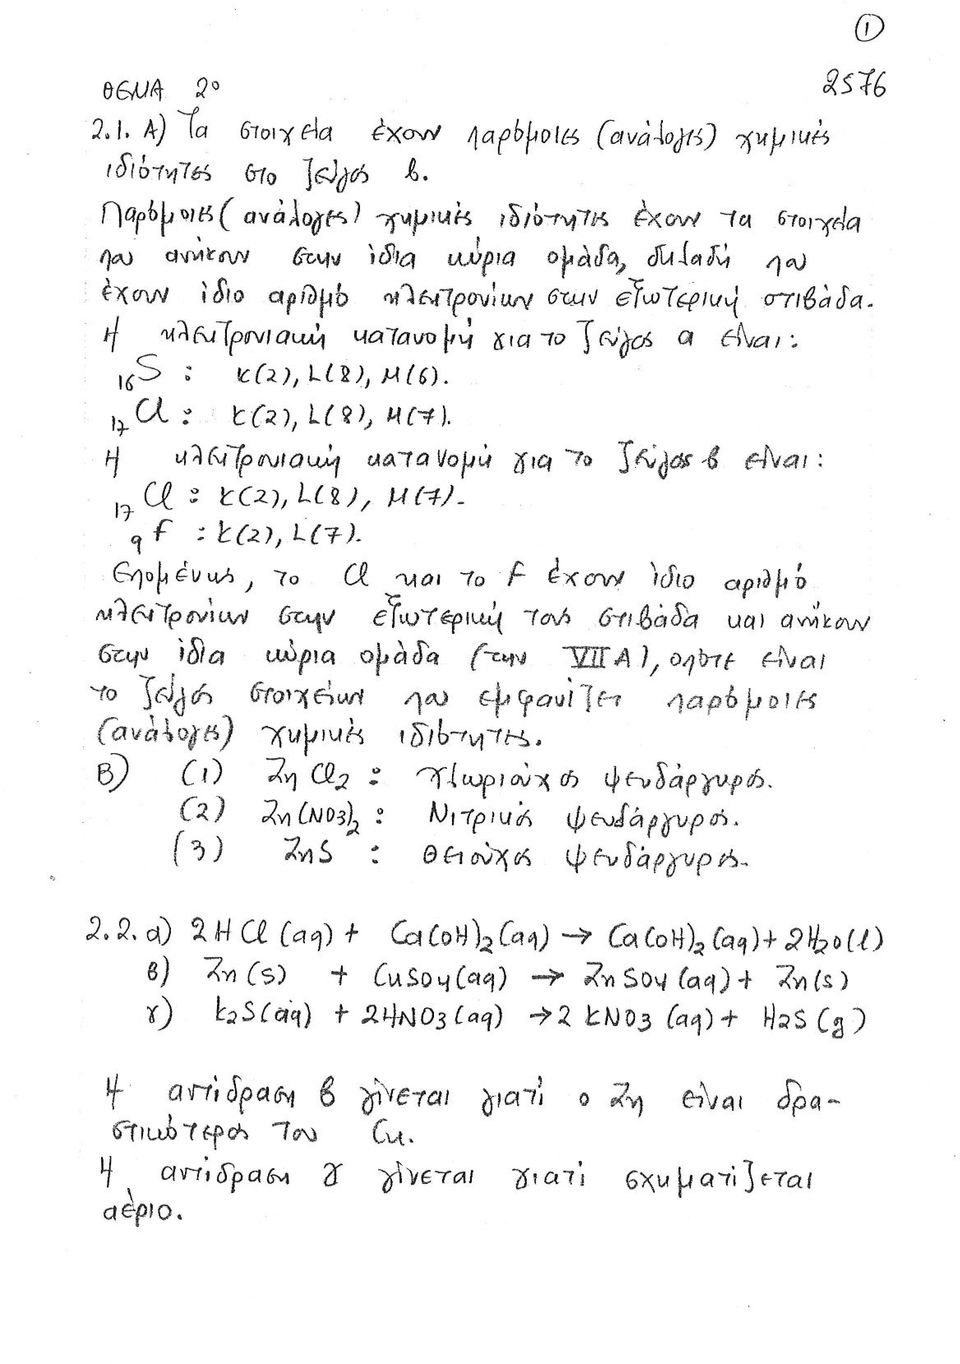 ①
2576
ΘΕΜΑ 2ο
2.1. Α) Τα στοιχεία έχουν παρόμοιες (ανάλογες) χημικές
ιδιότητες στο ζεύγος β.
Παρόμοιες (ανάλογες) χημικές ιδιότητες έχουν τα στοιχεία
που ανήκουν στην ίδια κύρια ομάδα, δηλαδή που
έχουν ίδιο αριθμό ηλεκτρονίων στην εξωτερική στιβάδα.
Η ηλεκτρονιακή κατανομή για το ζεύγος α είναι:
₁₆S : K(2), L(8), M(6).
₁₇Cl : K(2), L(8), M(7).
Η ηλεκτρονιακή κατανομή για το ζεύγος β είναι:
₁₇Cl : K(2), L(8), M(7).
₉F : K(2), L(7).
Επομένως, το Cl και το F έχουν ίδιο αριθμό
ηλεκτρονίων στην εξωτερική τους στιβάδα και ανήκουν
στην ίδια κύρια ομάδα (την VIIA), οπότε είναι
το ζεύγος στοιχείων που εμφανίζει παρόμοιες
(ανάλογες) χημικές ιδιότητες.
Β) (1) ZnCl₂ : Χλωριούχος ψευδάργυρος.
(2) Zn(NO3)₂ : Νιτρικός ψευδάργυρος.
(3) ZnS : Θειούχος ψευδάργυρος.
2.2. α) 2HCl (aq) + Ca(OH)₂ (aq) → Ca(OH)₂ (aq) + 2H₂O(l)
β) Zn(s) + CuSO4 (aq) → ZnSO4 (aq) + Zn(s)
γ) K₂S(aq) + 2HNO3 (aq) → 2 KNO3 (aq) + H₂S (g)
Η αντίδραση β γίνεται γιατί ο Zn είναι δρα-
στικότερος του Cu.
Η αντίδραση γ γίνεται γιατί σχηματίζεται
αέριο.